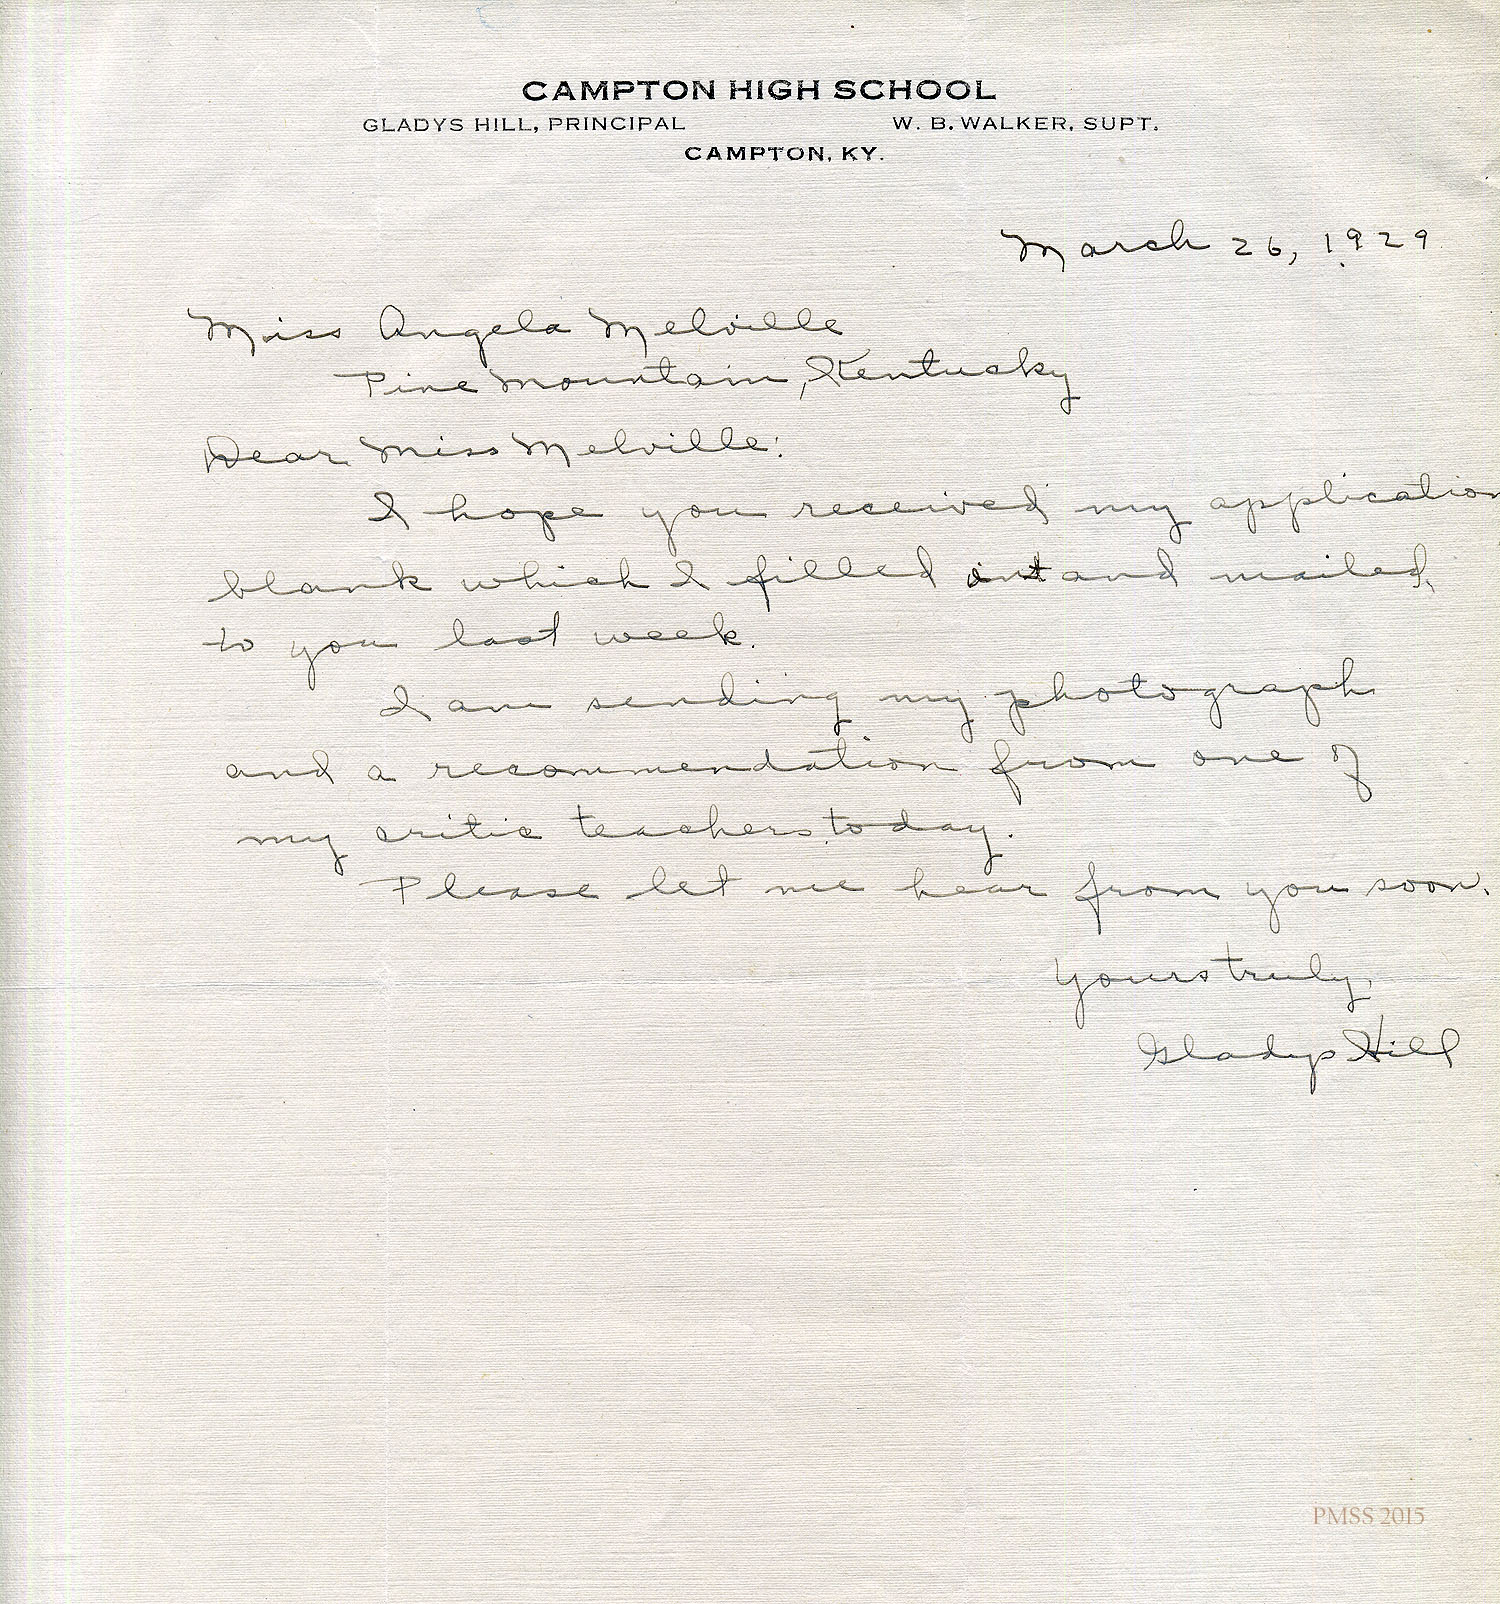 CAMPTON HIGH SCHOOL
GLADYS HILL, PRINCIPAL W. B. WALKER, SUPT.
CAMPTON, KY.
March 26, 1929
Miss Angela Melville
Pine Mountain, Kentucky
Dear Miss Melville:
I hope you received my application
blank which I filled out and mailed
to you last week.
I am sending my photograph
and a recommendation from one of
my critic teachers today.
Please let me hear from you soon.
Yours truly,
Gladys Hill
PMSS 2015